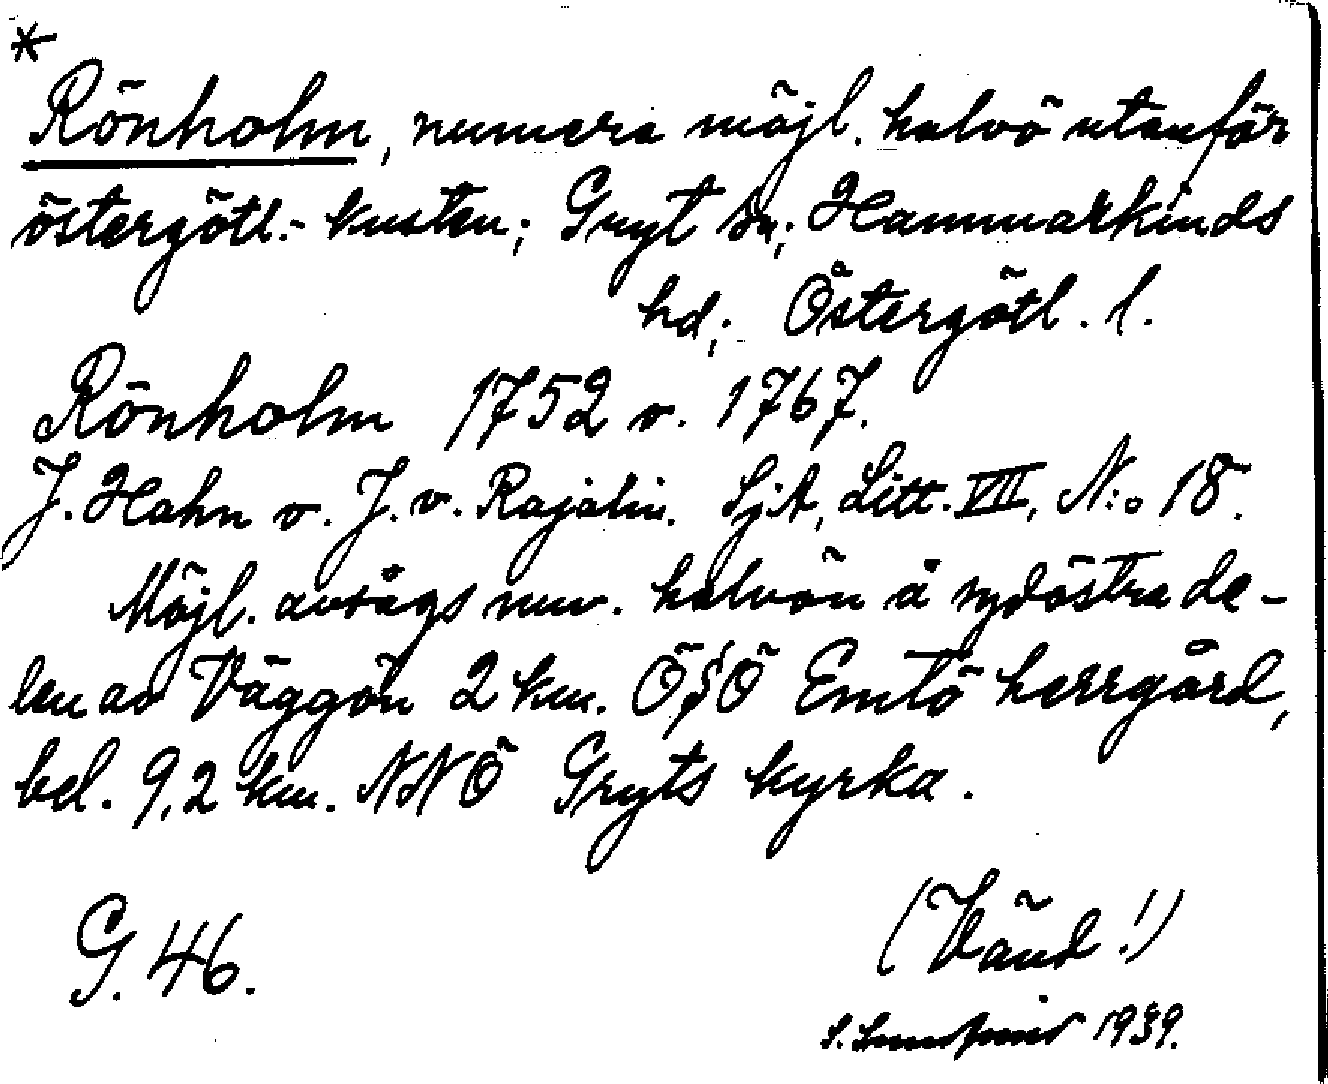 *
Rönholm, numera möjl. halvö utanför
östergötl.- kusten; Gryt sn; Hammarkinds
hd; Östergötl. l.
Rönholm 1752 o. 1767.
J. Hahn o. J. v. Rajalin. SjA, Litt. VII, N:o 18.
Möjl. avsågs nuv. halvön å sydöstra de-
len av Väggön 2 km. ÖSÖ Emtö herrgård,
bel. 9,2 km. NNÖ Gryts kyrka.
G. 46.
(Vänd!)
S. 1939.